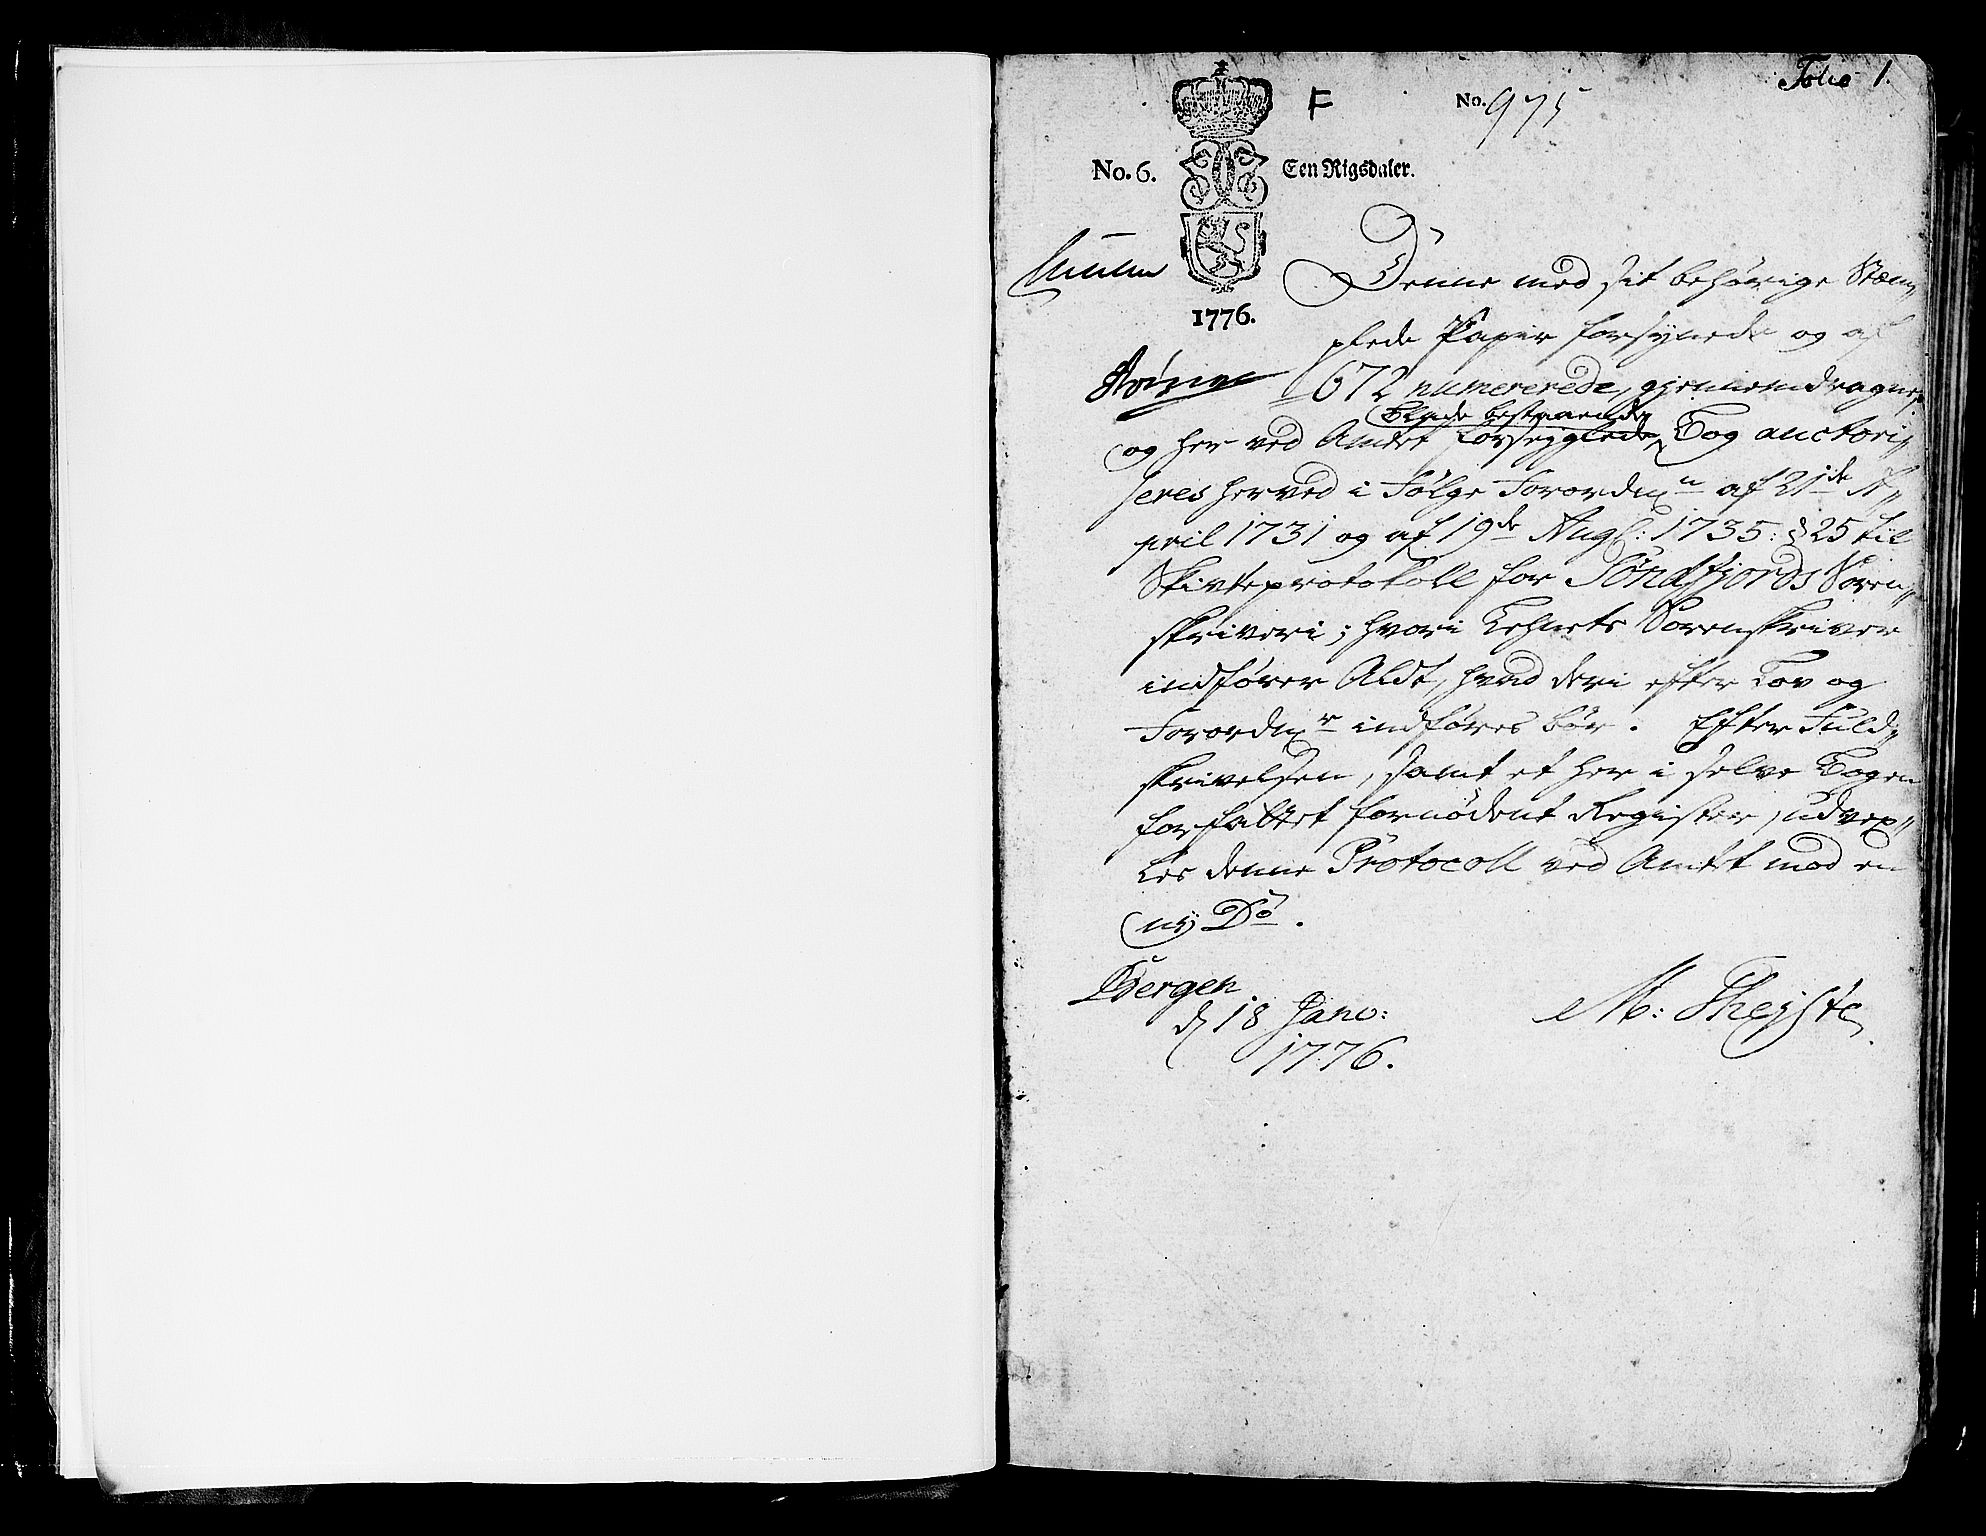 Folio 1.
F
No. 975
No. 6.
Een Rigsdaler.
1776.
Denne med sit behørige Stem,,
plede Papir forsynede og af
672 numererede, gjennemdragne,
Blade bestaaende
og her ved Amtet forseiglede Bog auctori,,
seres herved i Følge Forordn: af 21de A,,
pril 1731 og af 19de Aug: 1735: § 25 til
Skifteprotokoll for Søndfjords Soren,,
skriveri; hvori Rettens Sorenskriver
indfører Aldt, hvad deri efter Lov og
Forordnr indføres bør. Efter Fuld,,
skrivelsen, samt et her i selve Bogen
forfattet fornødent Register, udvex,,
les denne Protocoll ved Amtet mod en
ny Do.
Bergen
d 18 Janv:
1776.
M: Theyste